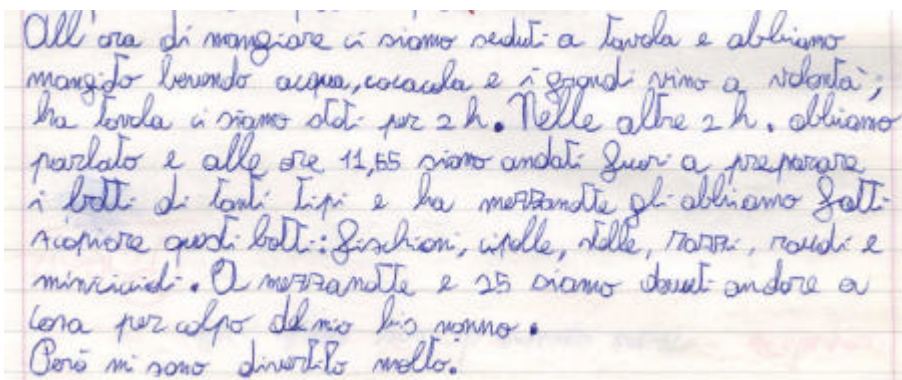 All'ora di mangiare ci siamo seduti a tavola e abbiamo
mangiato bevendo acqua, cocacola e i grandi vino a volontà;
ha tavola ci siamo stati per 2 h. Nelle altre 2 h. abbiamo
parlato e alle ore 11,55 siamo andati fuori a preparare
i botti di tanti tipi e ha mezzanotte gli abbiamo fatti
scopiare questi botti: fischioni, cipolle, stelle, razzi, raudi e
minicicoli. A mezzanotte e 25 siamo dovuti andare a
casa per colpo del mio bis nonno.
Però mi sono divertito molto.